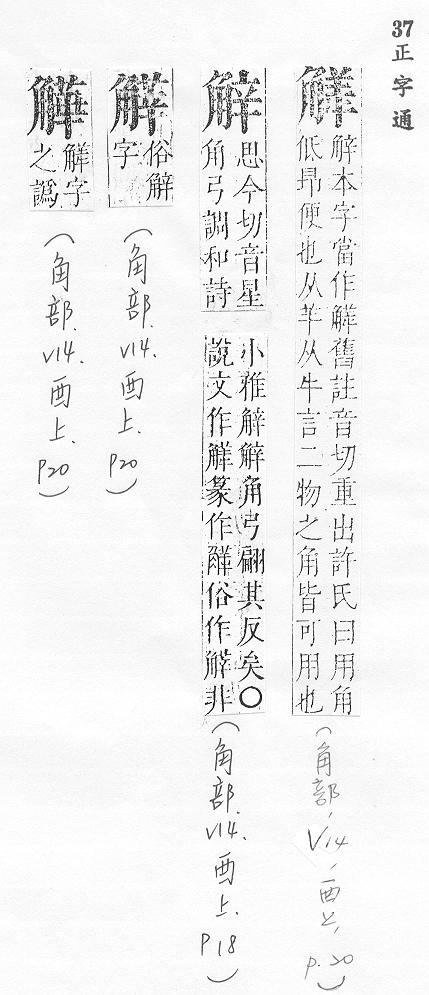 37 正字通
觲
本字當作觲舊註音切重出許氏曰用角
低昂便也从羊从牛言二物之角皆可用也
(角部, V14, 酉上, p.20)
觪
思今切音星
角弓調和詩
小雅觪觪角弓翩其反矣〇
說文作觲篆作俗作非
(角部. V14. 酉上. P18)
俗
字
(角部. V14. 酉上. P20)
字
之譌
(角部. V14. 酉上. P20)